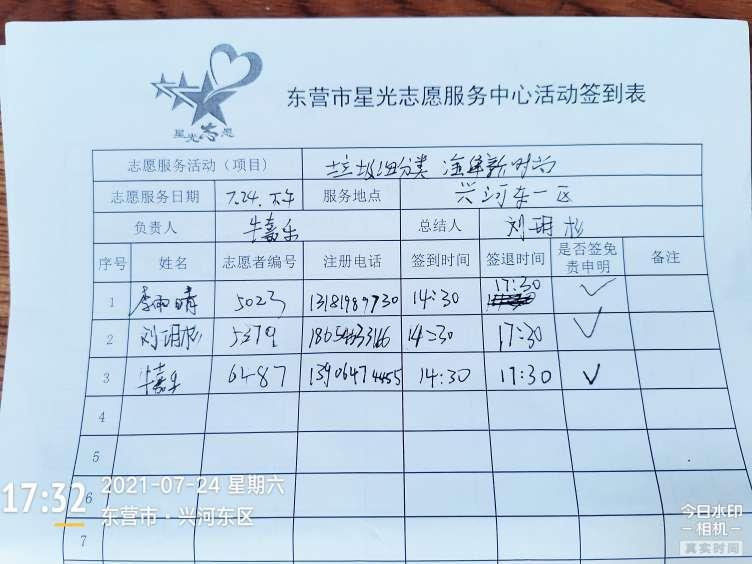 星光志愿
东营市星光志愿服务中心活动签到表
志愿服务活动（项目） 垃圾分类 新时尚
志愿服务日期 7.24.下午 服务地点 兴河东一区
负责人 牛嘉乐 总结人 刘玥杉
序号 姓名 志愿者编号 注册电话 签到时间 签退时间 是否签免责申明 备注
1 李雨晴 5023 13181989730 14:30 17:30 ✓
2 刘玥杉 14:30 17:30 ✓
3 牛嘉乐 6487 13906474455 14:30 17:30 ✓
4
5
6
7
17:32 2021-07-24 星期六
东营市·兴河东区
今日水印
-相机-
真实时间